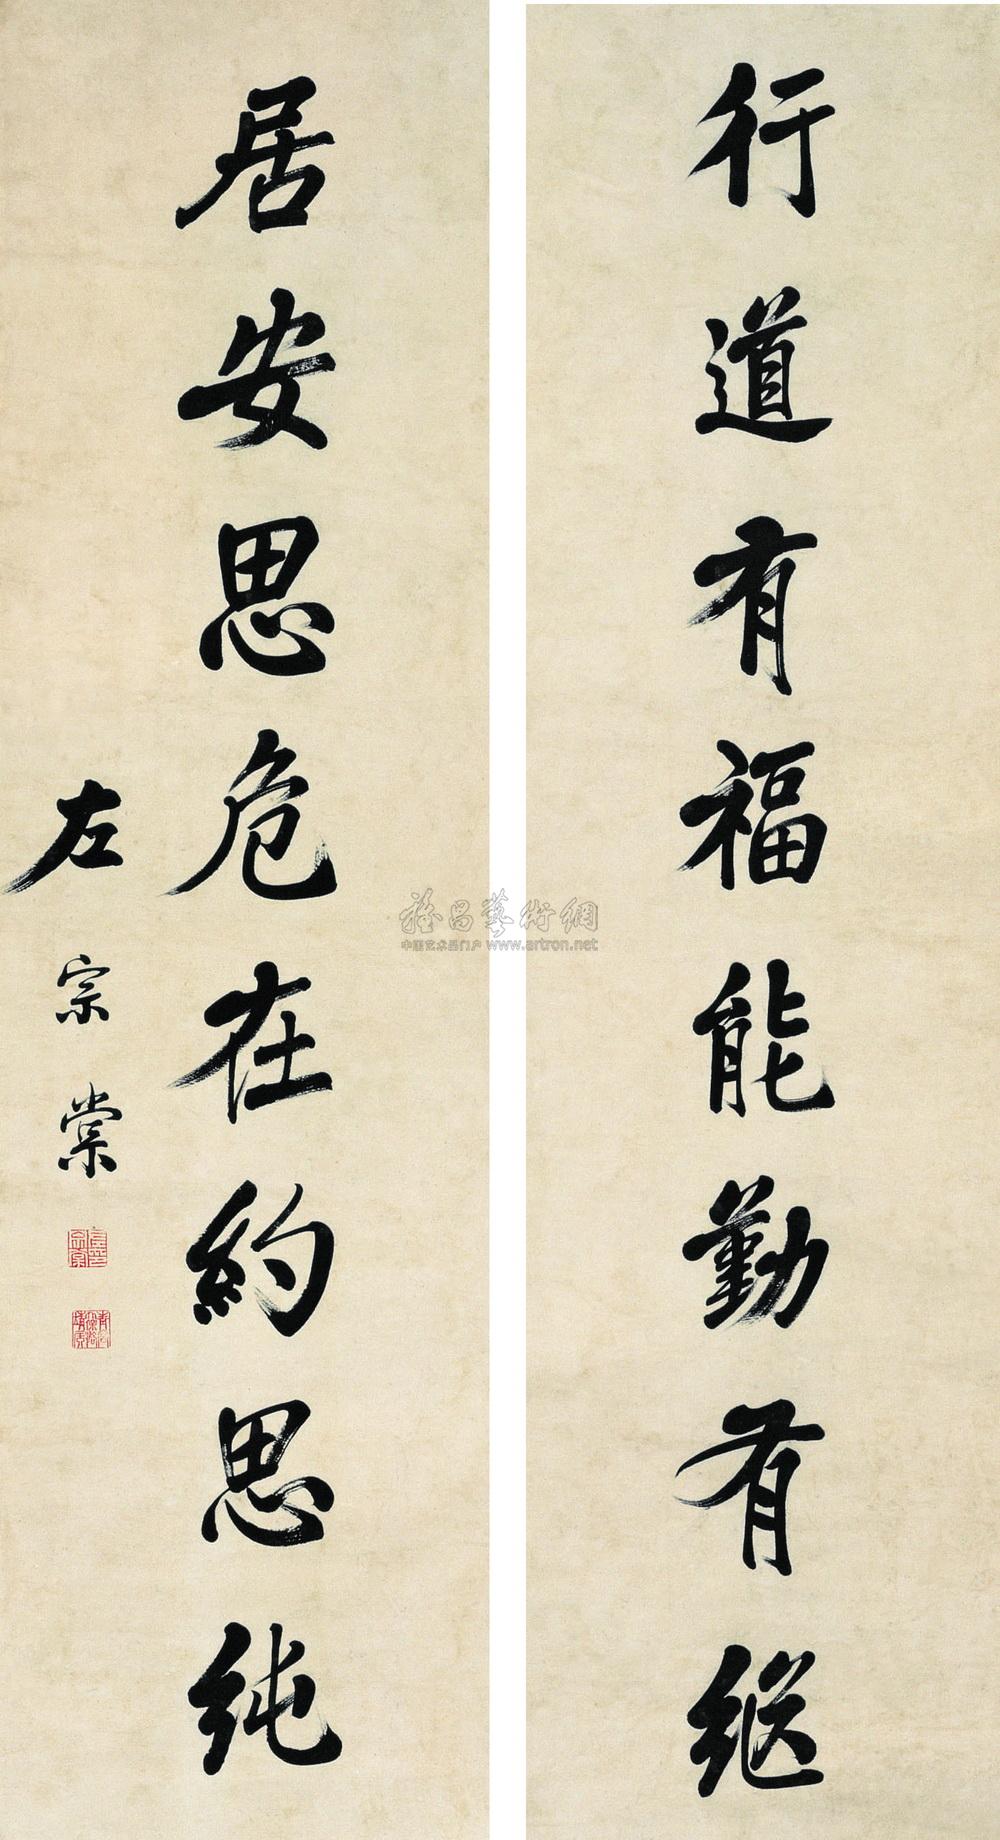 行道有福能勤有继
居安思危在約思纯
左宗棠
雅昌藝術網
中国艺术品门户 www.artron.net